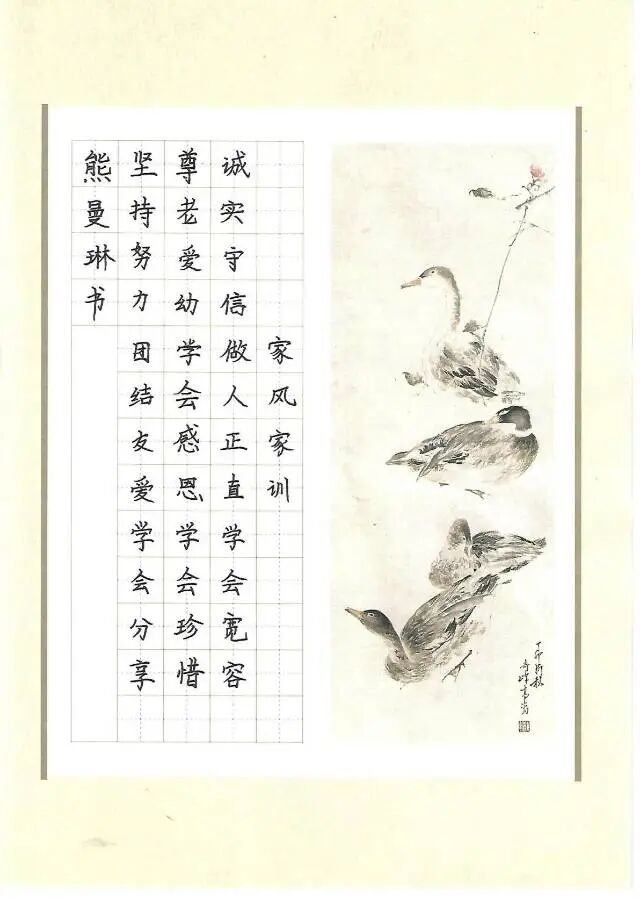 家风家训
诚实守信做人正直学会宽容
尊老爱幼学会感恩学会珍惜
坚持努力团结友爱学会分享
熊曼琳书